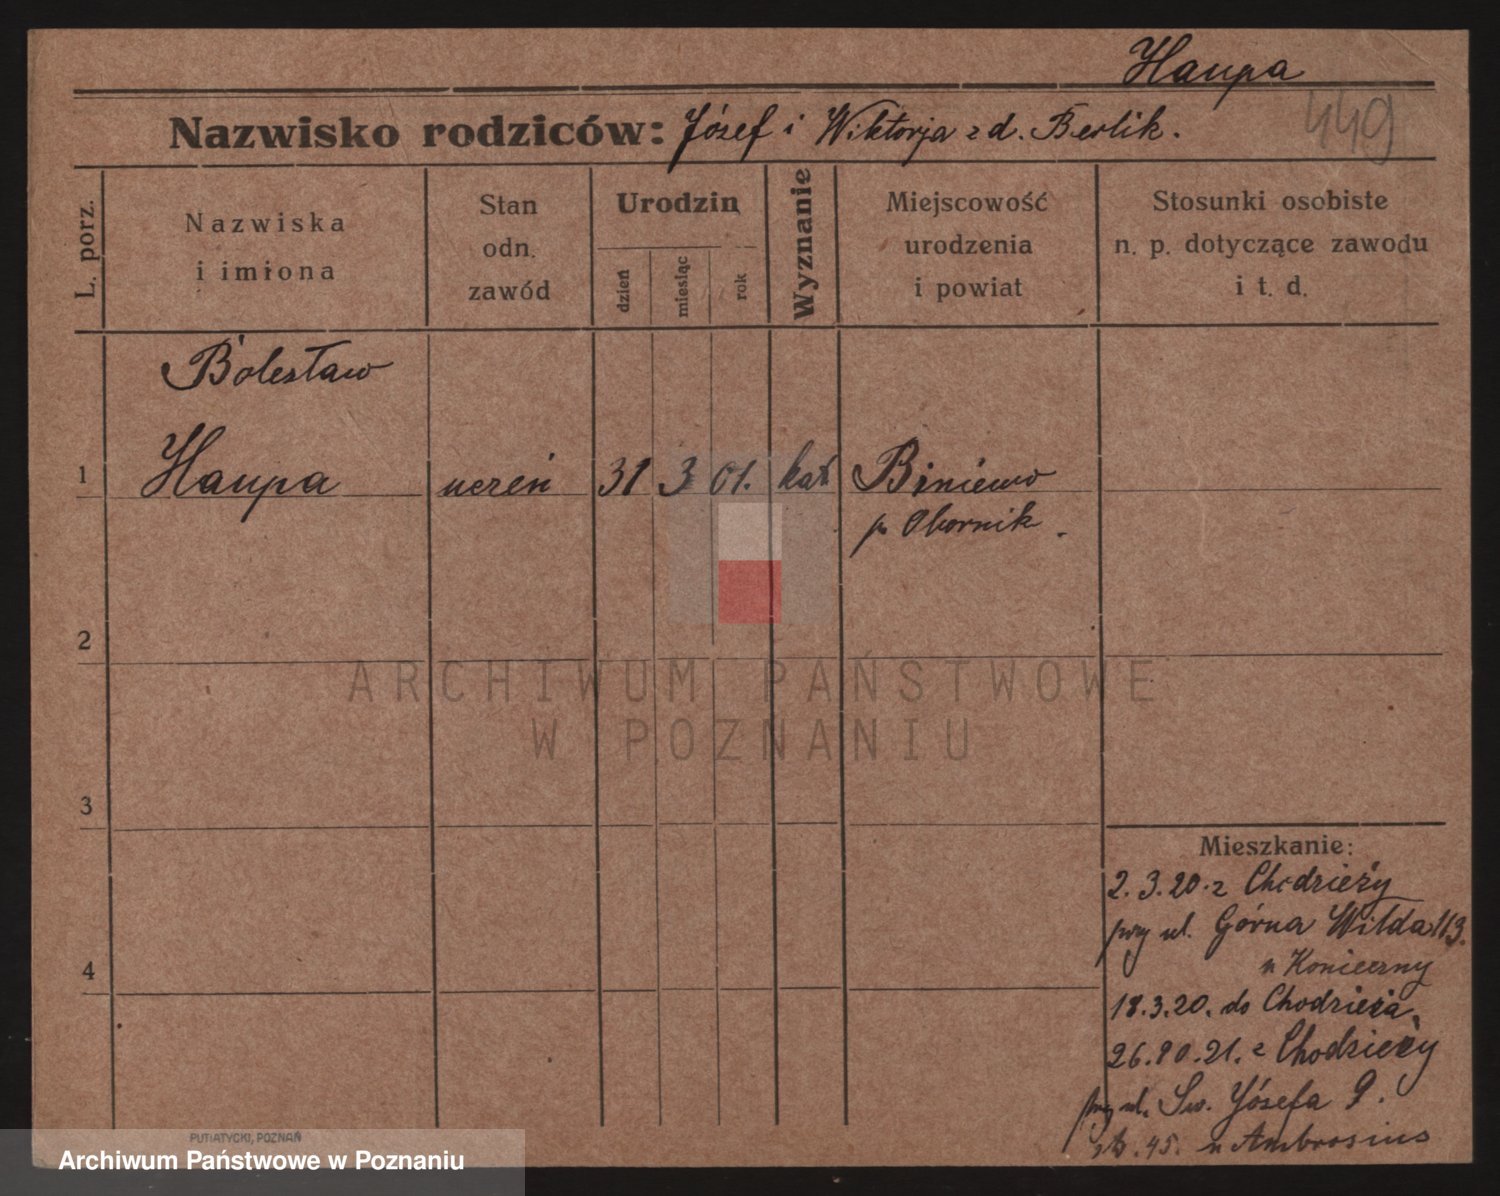 Haupa
449
Nazwisko rodziców: Józef i Wiktorja z d. Berlik.
L. porz.
Nazwiska
i imiona
Stan
odn.
zawód
Urodzin
dzień
miesiąc
rok
Wyznanie
Miejscowość
urodzenia
i powiat
Stosunki osobiste
n. p. dotyczące zawodu
i t. d.
Bolesław
1 Haupa uczeń 31 3 01. kat Biniewo
p Obornik.
2
3
4
Mieszkanie:
2.3.20. z Chodzieży
przy ul. Górna Wilda 113.
u Konieczny
18.3.20. do Chodzieża,
26.10.21. z Chodzieży
przy ul. Św. Józefa 9.
45. u Ambrosius
PUTIATYCKI, POZNAŃ
ARCHIWUM PAŃSTWOWE
W POZNANIU
Archiwum Państwowe w Poznaniu